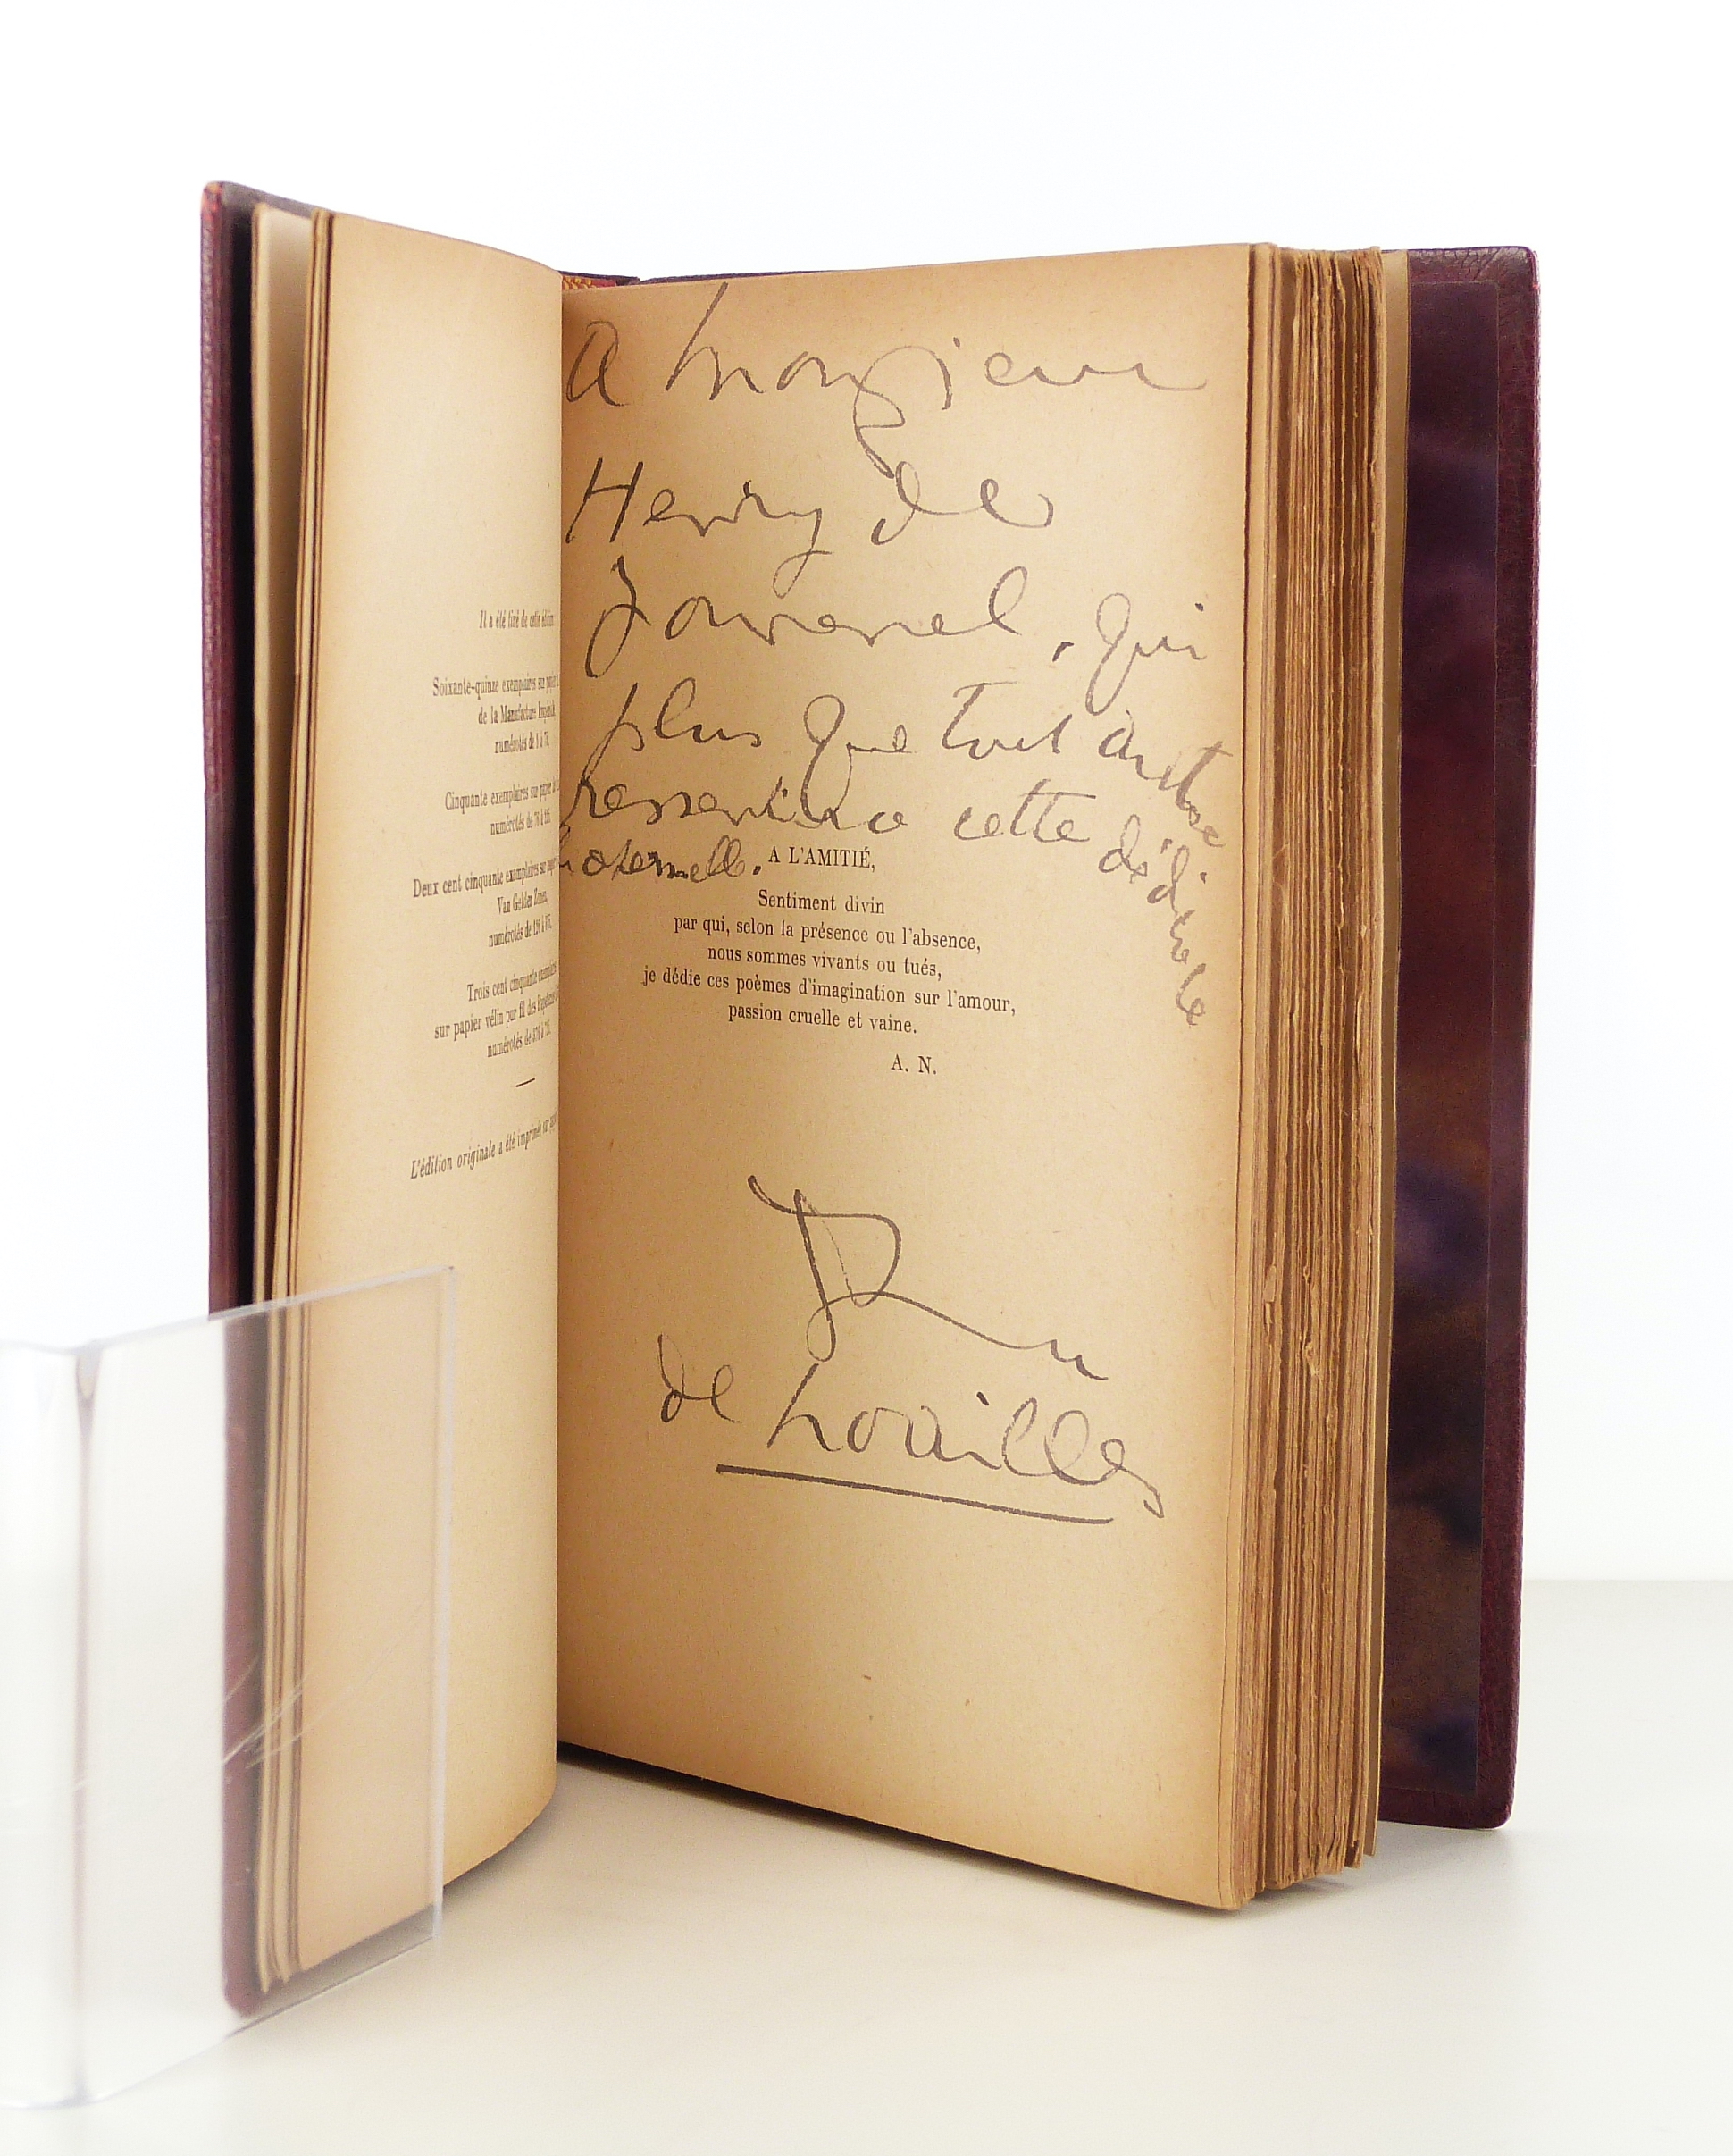 Il a été tiré de cette édition
Soixante-quinze exemplaires sur papier
de la Manufacture Impériale
numérotés de 1 à 75.
Cinquante exemplaires sur papier
numérotés de 76 à 125.
Deux cent cinquante exemplaires sur papier
Van Gelder Zonen,
numérotés de 126 à 375.
Trois cent cinquante exemplaires
sur papier vélin pur fil des Papeteries
numérotés de
L'édition originale a été imprimée sur
A Monsieur
Henry de
Jouvenel, qui
plus que tout autre
ressentira cette dédicace
fraternelle.
A L'AMITIÉ,
Sentiment divin
par qui, selon la présence ou l'absence,
nous sommes vivants ou tués,
je dédie ces poèmes d'imagination sur l'amour,
passion cruelle et vaine.
A. N.
de Noailles